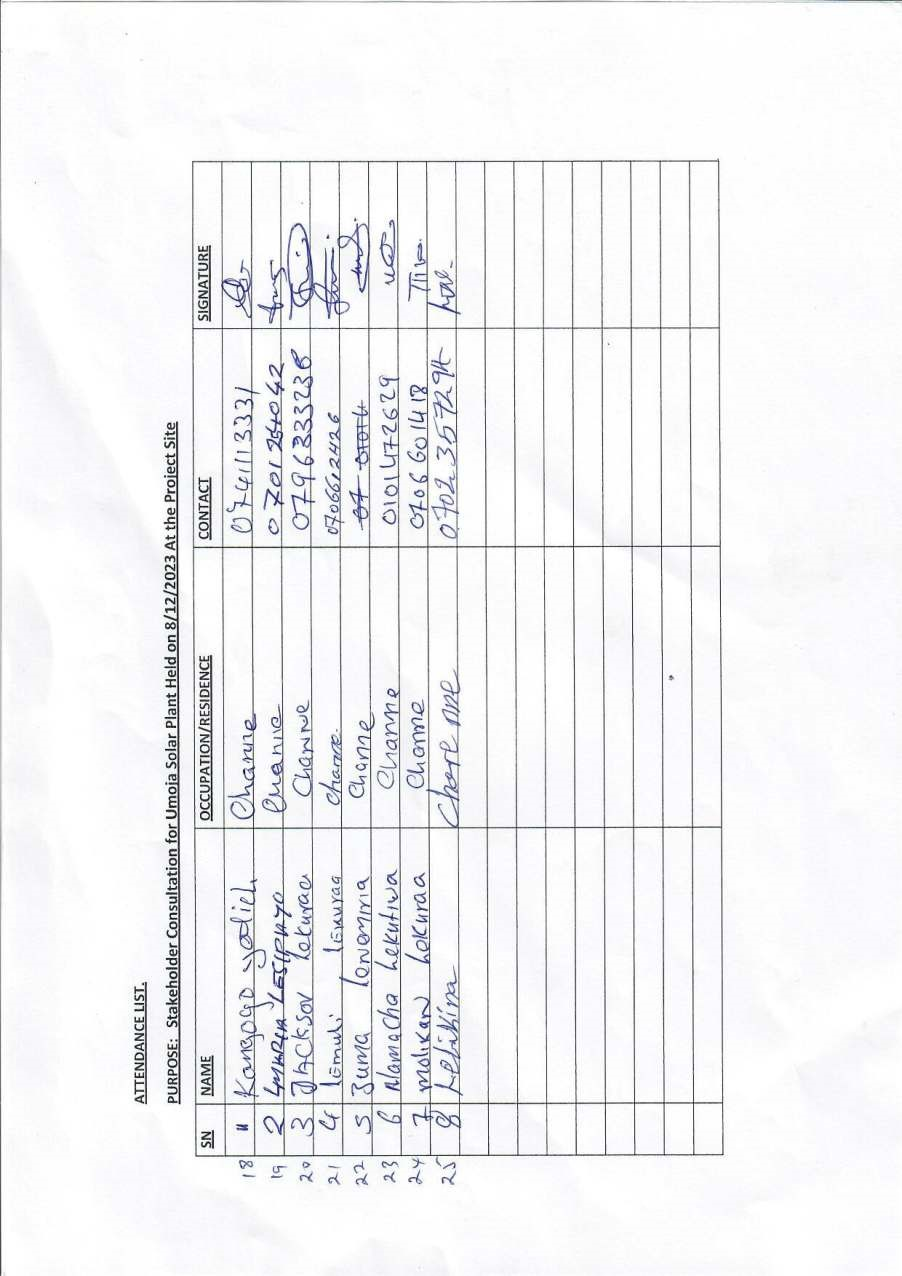 ATTENDANCE LIST.
PURPOSE: Stakeholder Consultation for Umoja Solar Plant Held on 8/12/2023 At the Project Site
SN NAME OCCUPATION/RESIDENCE CONTACT SIGNATURE
18 " Kangogo Channe 0741113331
19 2 0701254042
20 3 Jackson Lekuraa Channe 0796333236
21 4 Lemuki Lekuraa Channe 0706612426
22 5 Juma Lenomiria Channe
23 6 Namacha Lekutiwa Channe 0101472629
24 7 molikan Lokuraa Channe 0706601418
25 8 Lelikina 0702357294